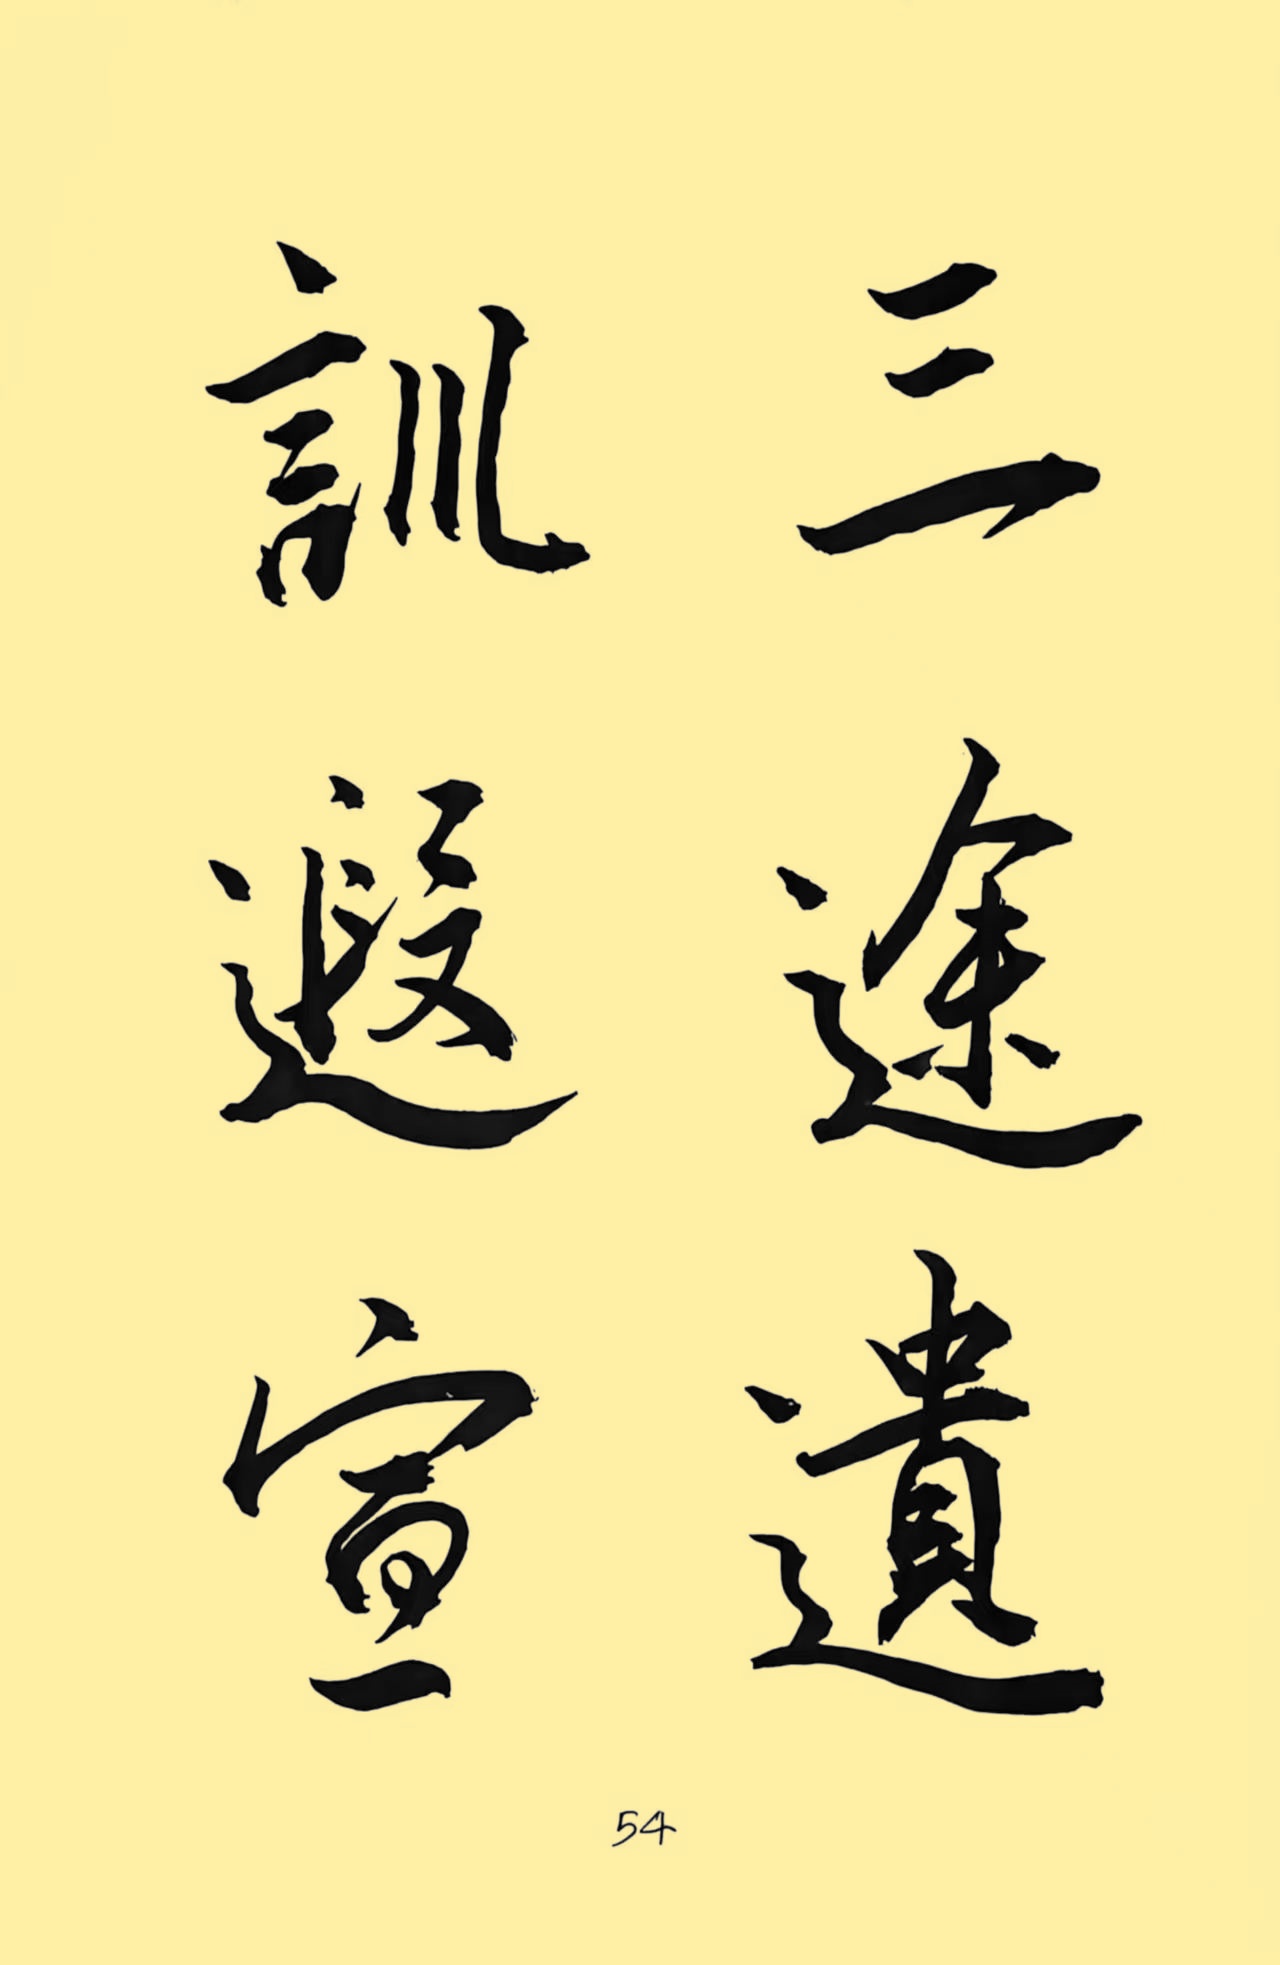 三途遺
訓遐宣
54